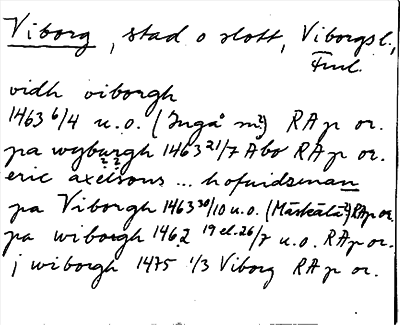 Viborg, stad o slott, Viborgs l.,
Finl.
vidh viborgh
1463 6/4 u.o. (Ingå sn?) RAp or.
pa wyburgh 1463 21/7 Åbo RAp or.
eric axelsons ... hofuidzman
pa Viborgh 1463 30/10 u.o. (Maskälä?) RAp or.
pa wiborgh 1462 19 el. 26/7 u.o. RAp or.
j wiborgh 1475 1/3 Viborg RAp or.